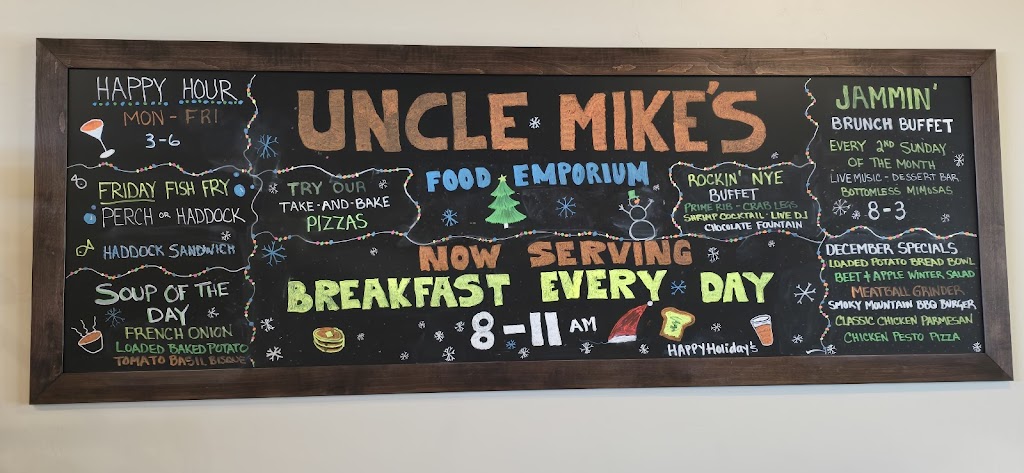 HAPPY HOUR
MON - FRI
3-6
FRIDAY FISH FRY
PERCH OR HADDOCK
HADDOCK SANDWICH
SOUP OF THE
DAY
FRENCH ONION
LOADED BAKED POTATO
TOMATO BASIL BISQUE
UNCLE MIKE'S
FOOD EMPORIUM
TRY OUR
TAKE-AND-BAKE
PIZZAS
ROCKIN' NYE
BUFFET
PRIME RIB - CRAB LEGS
SHRIMP COCKTAIL - LIVE DJ
CHOCOLATE FOUNTAIN
NOW SERVING
BREAKFAST EVERY DAY
8-11 AM
HAPPY Holiday's
JAMMIN'
BRUNCH BUFFET
EVERY 2ND SUNDAY
OF THE MONTH
LIVE MUSIC - DESSERT BAR
BOTTOMLESS MIMOSAS
8-3
DECEMBER SPECIALS
LOADED POTATO BREAD BOWL
BEET + APPLE WINTER SALAD
MEATBALL GRINDER
SMOKY MOUNTAIN BBQ BURGER
CLASSIC CHICKEN PARMESAN
CHICKEN PESTO PIZZA